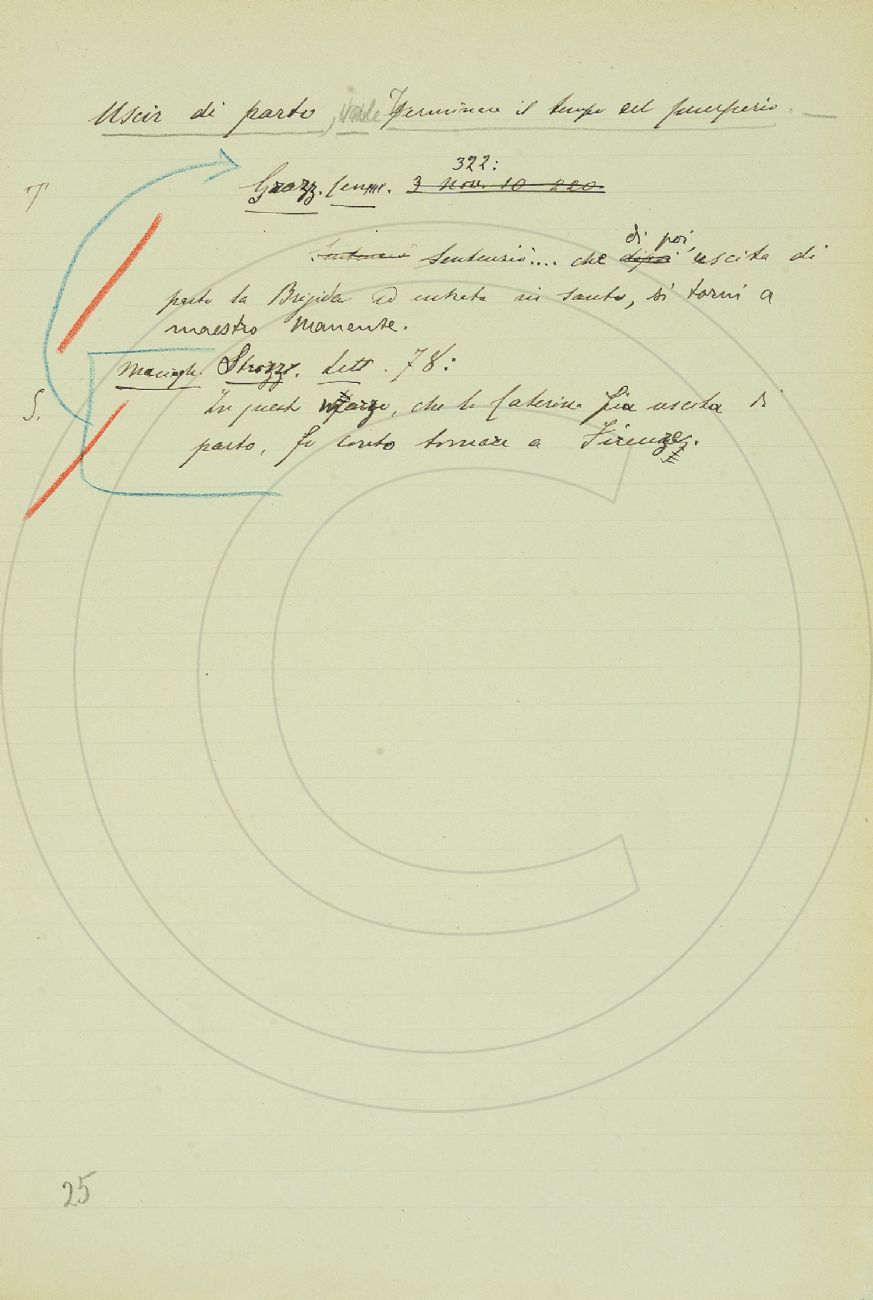 Uscir di parto, vale Terminare il tempo del puerperio.
322:
T Grazz. Cene. 3 Nov. 10 220.
di poi,
Sentenziò.... che dipoi uscita di
parto la Brigida ed entrata in santo, si torni a
maestro Manente.
Macingh. Strozz. Lett. 78:
S. In questo marzo, che la Caterina fia uscita di
parto, fo conto tornare a Firenze.
25